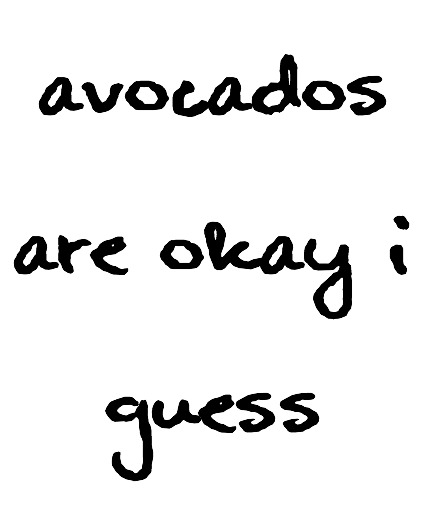 avocados
are okay i
guess